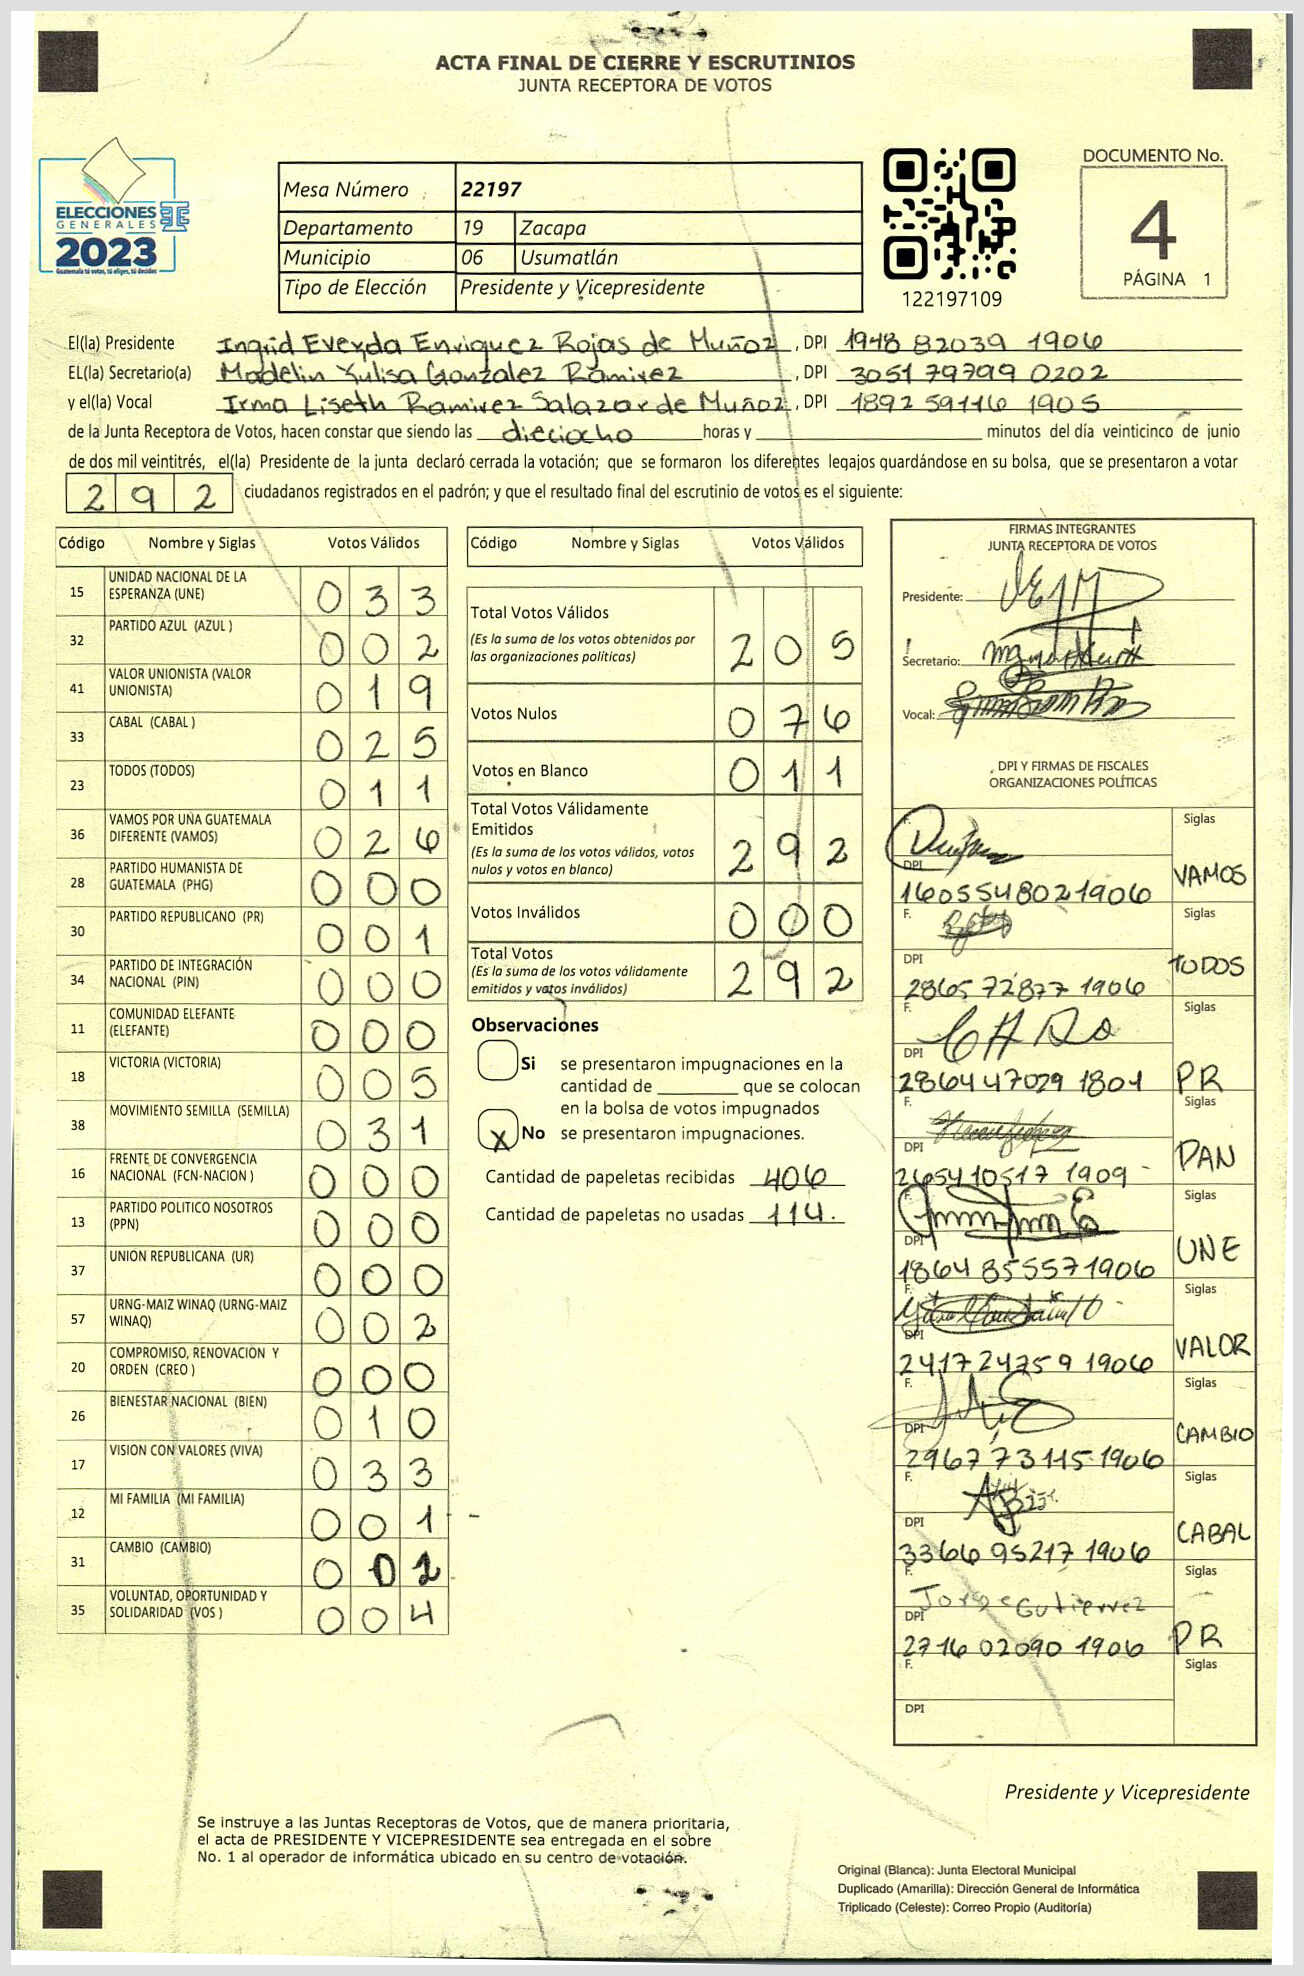 ACTA FINAL DE CIERRE Y ESCRUTINIOS
JUNTA RECEPTORA DE VOTOS
ELECCIONES
GENERALES
2023
Guatemala tú votas, tú eliges, tú decides
Mesa Número 22197
Departamento 19 Zacapa
Municipio 06 Usumatlán
Tipo de Elección Presidente y Vicepresidente
122197109
DOCUMENTO No.
4
PÁGINA 1
El(la) Presidente Ingrid Eveyda Enriquez Rojas de Muñoz, DPI 1948 82039 1906
EL(la) Secretario(a) Madelin Yulisa Gonzalez Ramirez, DPI 3051 79799 0202
y el(la) Vocal Irma Liseth Ramirez Salazar de Muñoz, DPI 1892 59116 1905
de la Junta Receptora de Votos, hacen constar que siendo las dieciocho horas y minutos del día veinticinco de junio
de dos mil veintitrés, el(la) Presidente de la junta declaró cerrada la votación; que se formaron los diferentes legajos guardándose en su bolsa, que se presentaron a votar
292 ciudadanos registrados en el padrón; y que el resultado final del escrutinio de votos es el siguiente:
Código Nombre y Siglas Votos Válidos
15 UNIDAD NACIONAL DE LA ESPERANZA (UNE) 033
32 PARTIDO AZUL (AZUL ) 002
41 VALOR UNIONISTA (VALOR UNIONISTA) 019
33 CABAL (CABAL ) 025
23 TODOS (TODOS) 011
36 VAMOS POR UNA GUATEMALA DIFERENTE (VAMOS) 026
28 PARTIDO HUMANISTA DE GUATEMALA (PHG) 000
30 PARTIDO REPUBLICANO (PR) 001
34 PARTIDO DE INTEGRACIÓN NACIONAL (PIN) 000
11 COMUNIDAD ELEFANTE (ELEFANTE) 000
18 VICTORIA (VICTORIA) 005
38 MOVIMIENTO SEMILLA (SEMILLA) 031
16 FRENTE DE CONVERGENCIA NACIONAL (FCN-NACION ) 000
13 PARTIDO POLITICO NOSOTROS (PPN) 000
37 UNION REPUBLICANA (UR) 000
57 URNG-MAIZ WINAQ (URNG-MAIZ WINAQ) 002
20 COMPROMISO, RENOVACION Y ORDEN (CREO ) 000
26 BIENESTAR NACIONAL (BIEN) 010
17 VISION CON VALORES (VIVA) 033
12 MI FAMILIA (MI FAMILIA) 001
31 CAMBIO (CAMBIO) 002
35 VOLUNTAD, OPORTUNIDAD Y SOLIDARIDAD (VOS ) 004
Código Nombre y Siglas Votos Válidos
Total Votos Válidos 205
(Es la suma de los votos obtenidos por
las organizaciones políticas)
Votos Nulos 076
Votos en Blanco 011
Total Votos Válidamente
Emitidos 292
(Es la suma de los votos válidos, votos
nulos y votos en blanco)
Votos Inválidos 000
Total Votos 292
(Es la suma de los votos válidamente
emitidos y votos inválidos)
Observaciones
Si se presentaron impugnaciones en la
cantidad de que se colocan
en la bolsa de votos impugnados
X No se presentaron impugnaciones.
Cantidad de papeletas recibidas 406
Cantidad de papeletas no usadas 114.
FIRMAS INTEGRANTES
JUNTA RECEPTORA DE VOTOS
Presidente:
Secretario:
Vocal:
DPI Y FIRMAS DE FISCALES
ORGANIZACIONES POLÍTICAS
F. Siglas
DPI VAMOS
1605548021906
F. Siglas
DPI TODOS
2865 72877 1906
F. Siglas
DPI
2864 47029 1801 PR
F. Siglas
DPI PAN
265410517 1909
F. Siglas
DPI UNE
1864 85557 1906
F. Siglas
DPI VALOR
2417 24759 1906
F. Siglas
DPI CAMBIO
2967 73115 1906
F. Siglas
DPI CABAL
3366 95217 1906
F. Siglas
Jorge Gutierrez
DPI PR
2716 02090 1906
F. Siglas
DPI
Presidente y Vicepresidente
Se instruye a las Juntas Receptoras de Votos, que de manera prioritaria,
el acta de PRESIDENTE Y VICEPRESIDENTE sea entregada en el sobre
No. 1 al operador de informática ubicado en su centro de votación.
Original (Blanca): Junta Electoral Municipal
Duplicado (Amarilla): Dirección General de Informática
Triplicado (Celeste): Correo Propio (Auditoría)